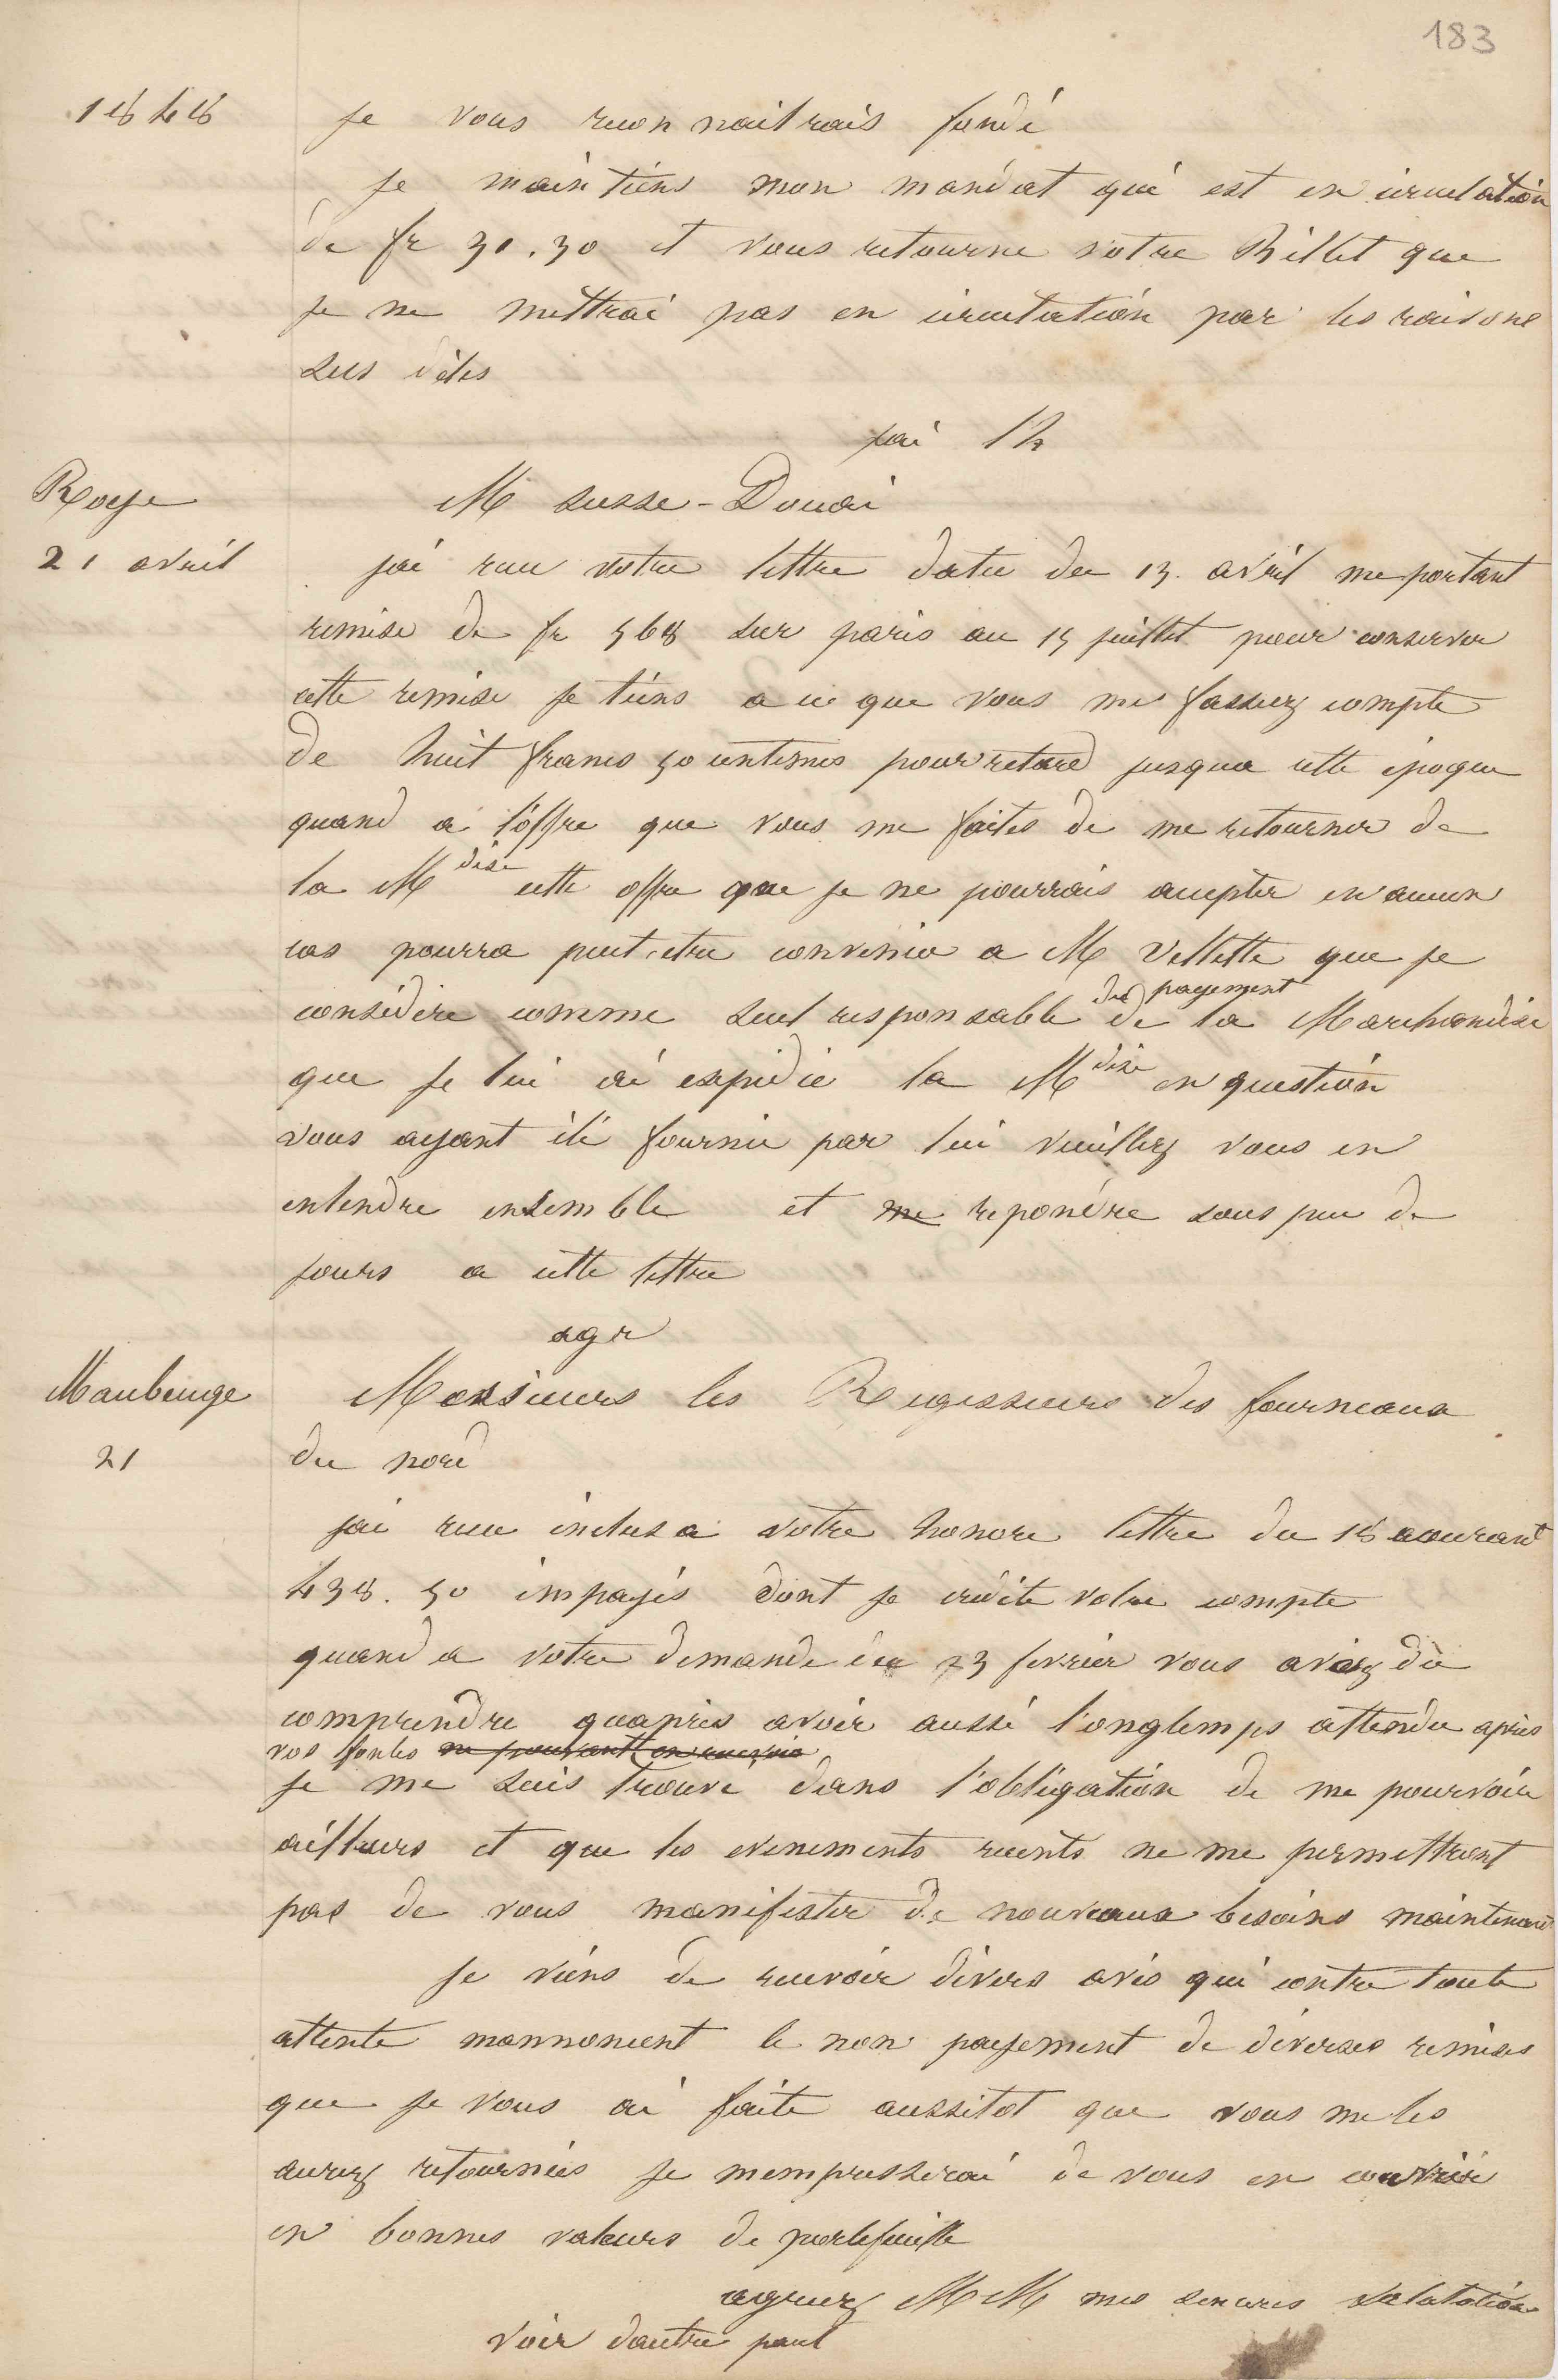 183
1848
je vous reconnaitrais fondé
je maintiens mon mandat qui est en circulation
de fr 30.30 et vous retourne votre Billet que
je ne mettrai pas en circulation par les raisons
sus dites
jai l'h
Roye
M susse - Douai
21 avril
jai recu votre lettre datee du 13. avril me portant
remise de fr 568 sur paris au 15 juillet pour conserver
cette remise je tiens a ce que vous me fassiez compte
de huit francs 50 centimes pour retard jusqua cette époque
quand a l'offre que vous me faites de me retourner de
la Mdise cette offre que je ne pourrais accepter en aucun
cas pourra peut etre convenir a M Vellette que je
considère comme seul responsable du payement de la Marchandise
que je lui ai expédié la Mdise en question
vous ayant été fournie par lui veuillez vous en
entendre ensemble et me repondre sous peu de
jours a cette lettre
agr
Maubeuge
Messieurs les Regisseurs des fourneaux
21
du nord
jai recu inclus a votre honoré lettre du 18 courant
438.50 impayés dont je crédite votre compte
quand a votre demande du 23 fevrier vous aviez dû
comprendre quapres avoir aussi longtemps attendu après
vos fontes ne pouvant en recevoir
je me suis trouvé dans l'obligation de me pourvoir
ailleurs et que les evenements recents ne me permettront
pas de vous manifester de nouveaux besoins maintenant
je viens de recevoir divers avis qui contre toute
attente mannoncent le non payement de diverses remises
que je vous ai faite aussitot que vous me les
aurez retournées je mempresserai de vous en couvrir
en bonnes valeurs de portefeuille
agreez MM mes sinceres salutations
voir dautre part